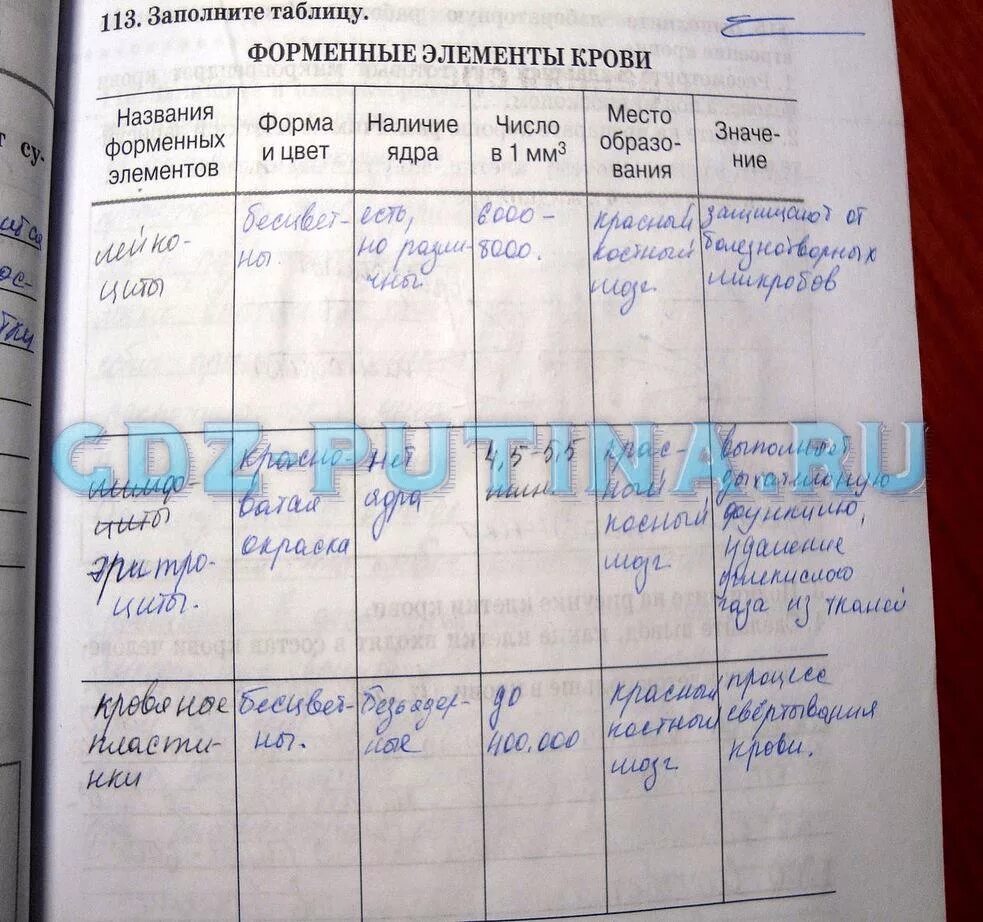 113. Заполните таблицу.
ФОРМЕННЫЕ ЭЛЕМЕНТЫ КРОВИ
Названия
форменных
элементов
Форма
и цвет
Наличие
ядра
Число
в 1 мм³
Место
образо-
вания
Значе-
ние
лейко-
циты
бесцвет-
ны.
есть,
но разли-
чны.
6000 –
8000.
красный
костный
мозг.
защищают от
болезнетворных
микробов
GDZ-PUTINA.RU
лимфо-
циты
эритро-
циты.
красно-
ватая
окраска
нет
ядра
4,5-5,5
млн.
крас-
ный
косный
мозг.
выполняет
дыхательную
функцию,
удаление
углекислого
газа из тканей
кровяные
пласти-
нки
Бесцвет-
ны.
Безъядер-
ные
до
400.000
красный
костный
мозг
процесс
свёртывания
крови.
т су-
ос-
тки